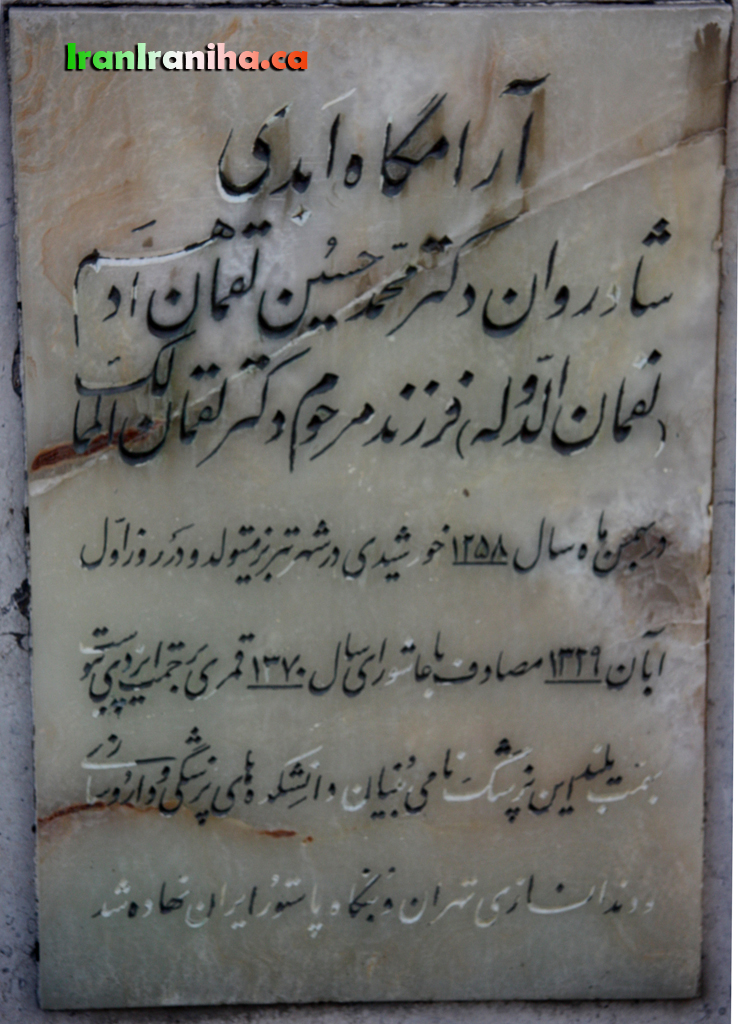 IranIraniha.ca
آرامگاه اَبدی
شادروان دکتر محمّد حسُین لقمان اَدهم
(لقمان الدّوله) فرزند مرحوم دکتر لقمان الممالک
در بهمن ماه سال ۱۲۵۸ خورشیدی در شهر تبریز متولد و در روز اوّل
آبان ۱۳۲۹ مصادف با عاشورای سال ۱۳۷۰ قمری برحمت ایزدی پیوست
بهمت بلند این پزشک نامی بُنیان دانشکده های پزشگی و داروسازی
و دندانسازی تهران و بنگاه پاستور ایران نهاده شد